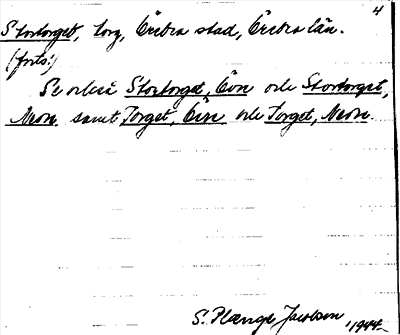 4
Stortorget, torg, Örebro stad, Örebro län.
(forts.)
Se också Stortorget, Övn och Stortorget,
Nedn samt Torget, Övn och Torget, Nedn.
S. Plænge Jacobson, 1944